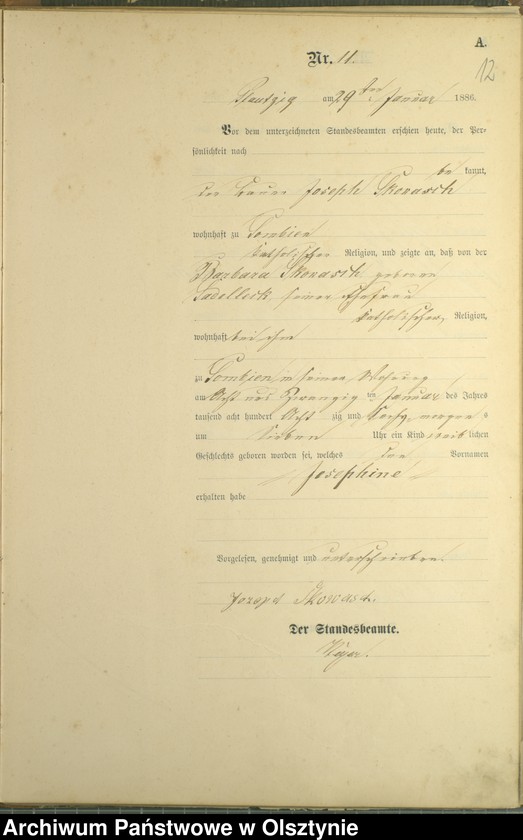 A.
Nr. 11.
12
am 29ten Januar 1886.
Vor dem unterzeichneten Standesbeamten erschien heute, der Per-
sönlichkeit nach
be kannt,
der Bauer Joseph Skowasch
wohnhaft zu Gombien
katholischer Religion, und zeigte an, daß von der
Barbara Skowasch geborene
seiner Ehefrau
katholischer, Religion,
wohnhaft bei ihm
zu Gombien in seiner Wohnung
am Acht und Zwanzig ten Januar des Jahres
tausend acht hundert Acht zig und Sechs, morgens
um Sieben Uhr ein Kind weib lichen
Geschlechts geboren worden sei, welches den Vornamen
Josephine
erhalten habe
Vorgelesen, genehmigt und unterschrieben.
Skowasch.
Der Standesbeamte.
Archiwum Państwowe w Olsztynie